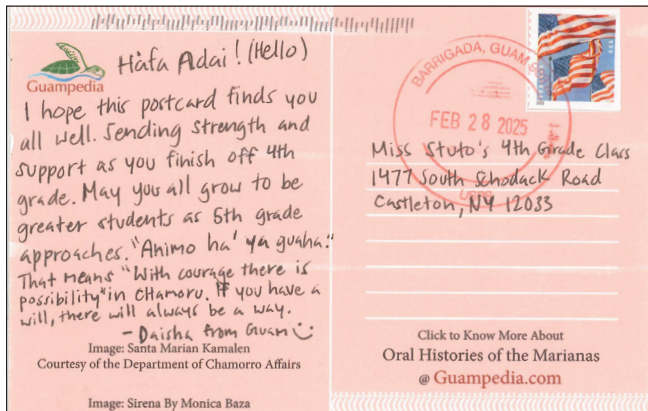 Håfa Adai! (Hello)
Guampedia
I hope this postcard finds you
all well. Sending strength and
support as you finish off 4th
grade. May you all grow to be
greater students as 5th grade
approaches. "Animo ha' ya guaha."
That means "With courage there is
possibility" in CHamoru. If you have a
will, there will always be a way.
- Daisha from Guam
Image: Santa Marian Kamalen
Courtesy of the Department of Chamorro Affairs
Image: Sirena By Monica Baza
BARRIGADA, GUAM
FEB 28 2025
USPS
USA
Miss Stuto's 4th Grade Class
1477 South Schodack Road
Castleton, NY 12033
Click to Know More About
Oral Histories of the Marianas
@ Guampedia.com